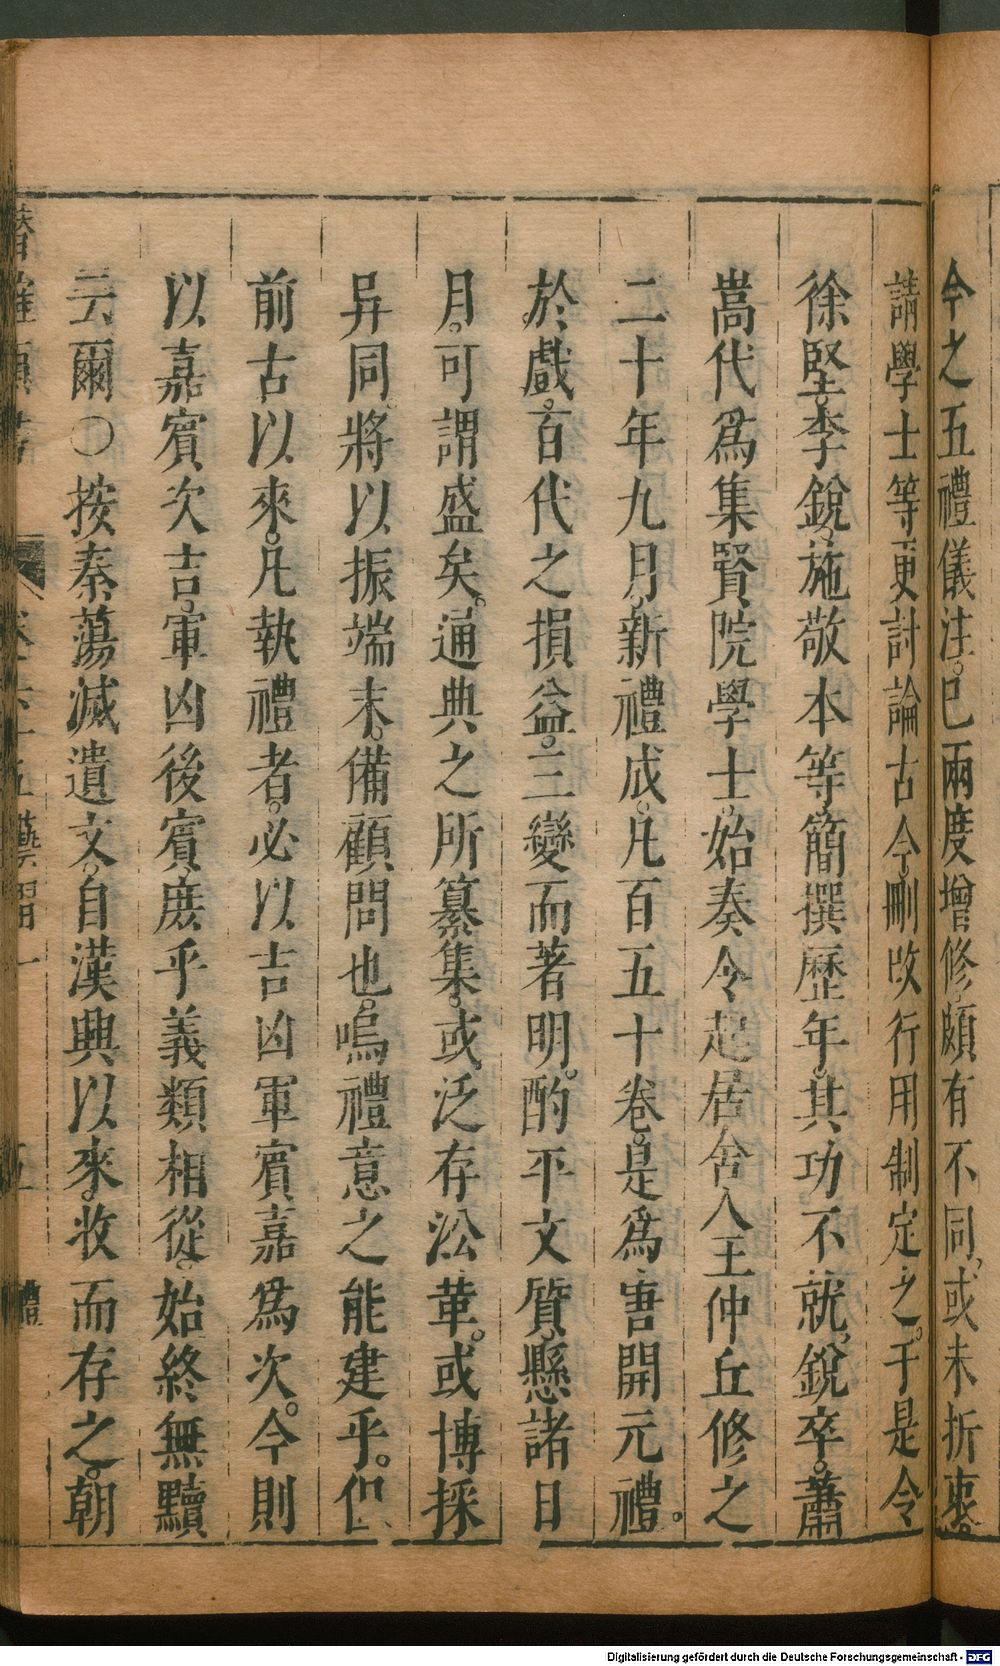 今之五禮儀注。已兩度增修。頗有不同。或未折衷。
請學士等更討論古今。刪改行用制定之。于是令
徐堅。李銳。施敬本等簡撰。歷年。其功不就。銳卒。蕭
嵩代爲集賢院學士。始奏令起居舍人王仲丘修之
二十年九月。新禮成。凡百五十卷。是爲唐開元禮。
於戲。百代之損益。三變而著明。酌乎文質。懸諸日
月。可謂盛矣。通典之所纂集。或泛存沿革。或博採
异同。將以振端末。備顧問也。嗚禮意之能建乎。但
前古以來。凡執禮者。必以吉凶軍賓嘉爲次。今則
以嘉賓次吉。軍凶後賓。庶乎義類相從。始終無黷
云爾〇按秦蕩滅遺文。自漢興以來。收而存之。朝
五 禮
Digitalisierung gefördert durch die Deutsche Forschungsgemeinschaft - DFG